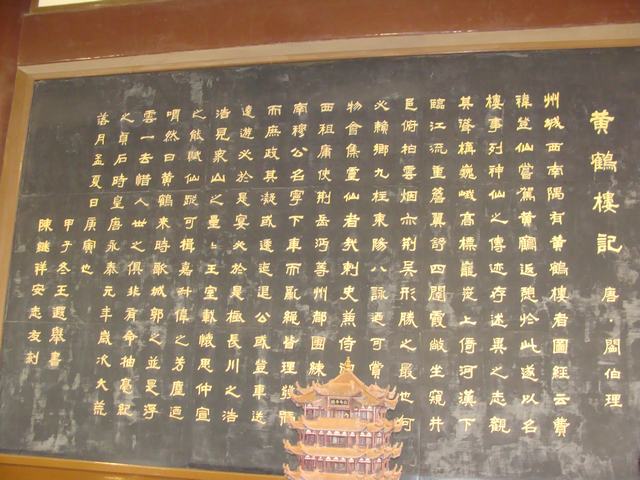 黄鶴樓記 唐·閻伯理
州城西南隅有黄鶴樓者圖經云費
禕登仙嘗駕黄鶴返憩於此遂以名
樓事列神仙之傳迹存述異之志觀
其聳構巍峨高標巃嵸上倚河漢下
臨江流重簷翼舒四闥霞敞坐窺井
邑俯拍雲烟亦荆吴形勝之最也何
必賴鄉九柱東陽八詠迺可賞
物會集靈仙者哉刺史兼侍
西租庸使荆岳沔等州都團練
南穆公名寧下車而亂繩皆理發號
而庶政其凝或逶迤退公或登車送
遠遊必於是宴必於是極長川之浩
浩見衆山之纍纍王室載懷思仲宣
之能賦仙蹤可揖嘉叔偉之芳塵迺
喟然曰黄鶴來時歌城郭之並是浮
雲一去惜人世之俱非有命抽毫紀
之貞石時皇唐永泰元年歲次大荒
落月孟夏日庚寅也
甲子冬王遐舉書
陳継祥安志友刻